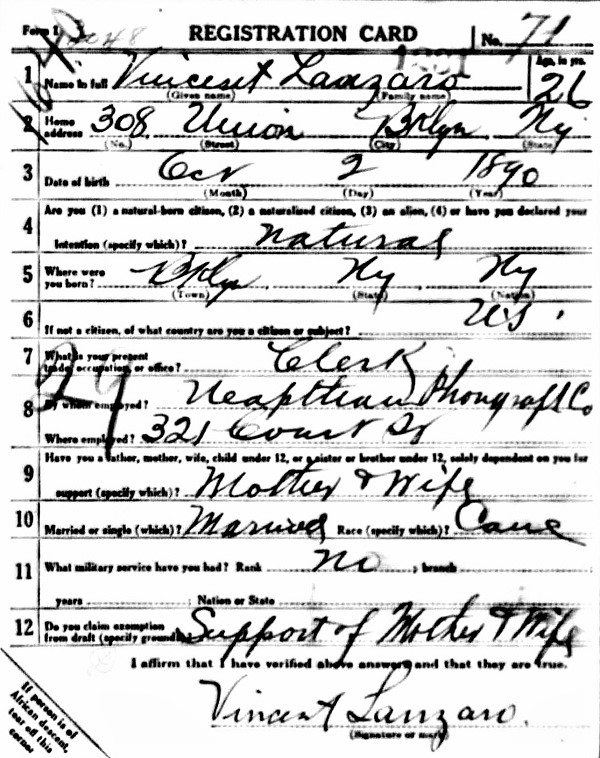 Form 1 3 REGISTRATION CARD No. 71
1 Name in full Vincent Lanzaro Age, in yrs. 26
(Given name) (Family name)
2 Home address 308 Union Bklyn Ny
(No.) (Street) (City) (State)
3 Date of birth Oct 2 1890
(Month) (Day) (Year)
4 Are you (1) a natural-born citizen, (2) a naturalized citizen, (3) an alien, (4) or have you declared your
intention (specify which)? natural
5 Where were you born? Bklyn Ny Ny
(Town) (State) (Nation)
6 If not a citizen, of what country are you a citizen or subject? US
7 What is your present trade, occupation, or office? Clerk
29
8 By whom employed? Phonograft Co
Where employed? 321 Court St
9 Have you a father, mother, wife, child under 12, or a sister or brother under 12, solely dependent on you for
support (specify which)? Mother & Wife
10 Married or single (which)? Married Race (specify which)? Cauc
11 What military service have you had? Rank no ; branch
years Nation or State
12 Do you claim exemption from draft (specify grounds)? Support of Mother & Wife
I affirm that I have verified above answers and that they are true.
Vincent Lanzaro.
(Signature or mark)
If person is of
African descent,
tear off this
corner